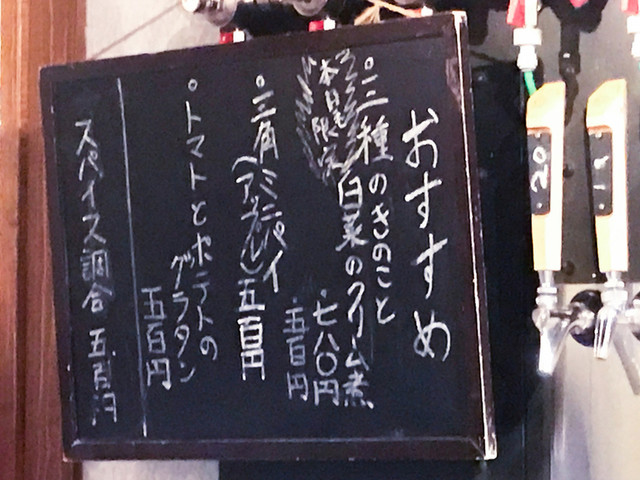 おすすめ
・三種のきのこと
白菜のクリーム煮
・七八〇円
・五百円
本日も限定
・三角ミニパイ
(アップル)五百円
・トマトとポテトの
グラタン
五百円
スパイス調合 五百円
20
19